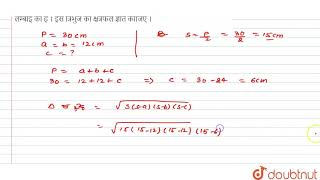 लम्बाई का है । इस त्रिभुज का क्षेत्रफल ज्ञात कीजिए ।
P = 30 cm
a = b = 12 cm
c = ?
S = P/2 = 30/2 = 15 cm
P = a+b+c
30 = 12+12+c ⇒ c = 30-24 = 6cm
= √S(S-a)(S-b)(S-c)
= √15(15-12)(15-12)(15-6)
doubtnut